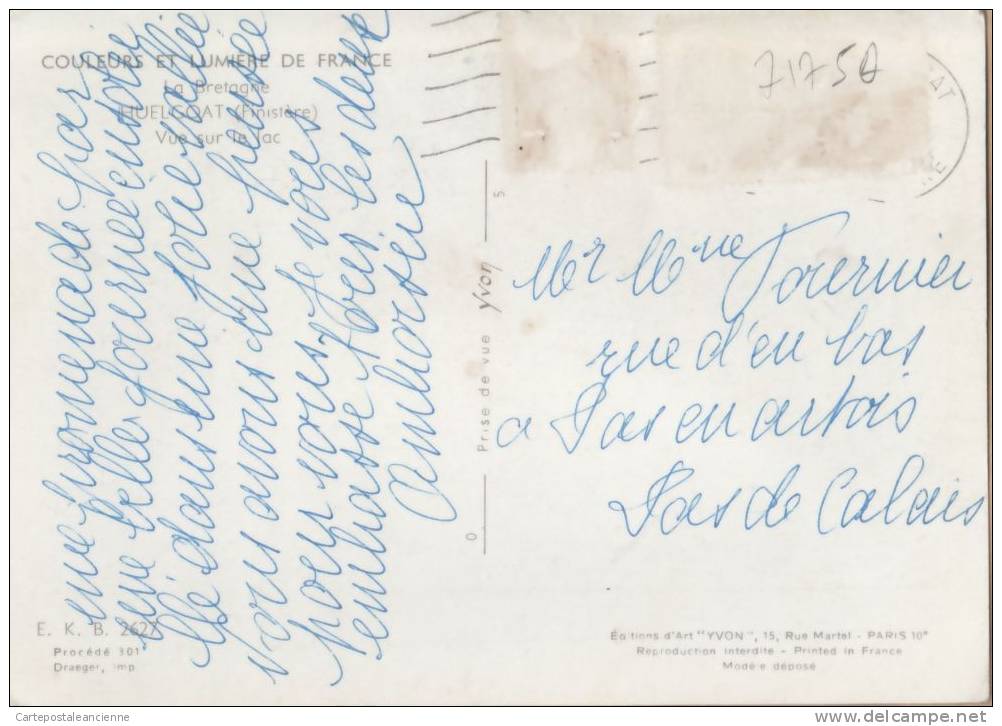 COULEURS ET LUMIÈRE DE FRANCE
La Bretagne
HUELGOAT (Finistère)
Vue sur le lac
71750
une promenade par
une belle journée ensolei
llé dans une forêt
nous avons une pensée
pour vous je vous
embrasse tous les deux
Prise de vue Yvon
0 5
Mr Mme Fournier
rue d'en bas
a Pas en artois
Pas de Calais
E. K. B. 2627
Procédé 301
Draeger, imp
Éditions d'Art "YVON", 15, Rue Martel - PARIS 10e
Reproduction Interdite - Printed in France
Modèle déposé
Cartepostaleancienne
www.delcampe.net